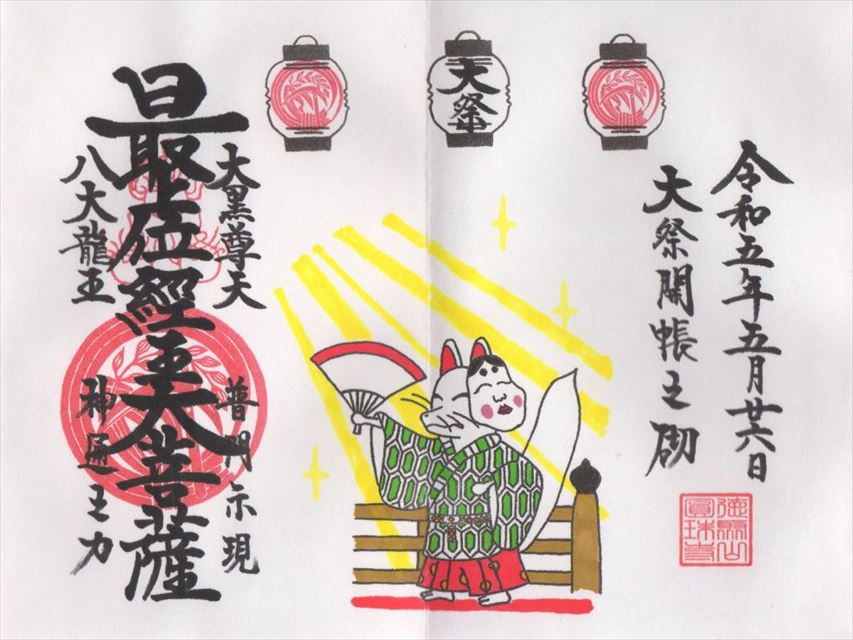 令和五年五月廿六日
大祭開帳之砌
圓珠寺
大祭
大黒尊天
普門示現
最上位經王大菩薩
八大龍王
神通之力